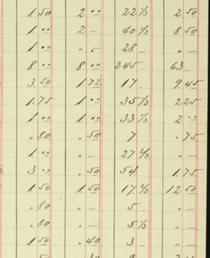 1 50 2 00 22 ½ 2 50
1 00 2 – 40 ½ 8 50
1 00 . – 28 –
8 00 8 00 245 – 63 –
3 50 1 72 17 – 9 45
1 75 1 00 35 ½ 2 25
1 00 1 00 33 ½ 2 00
. 80 . 50 7 . 75
1 00 . – 27 ½ . –
3 00 . 50 54 1 75
1 50 1 50 17 ½ 12 50
. 80 . – 5 – . –
. 80 . – 5 ½ . –
1 50 . 40 3 . –